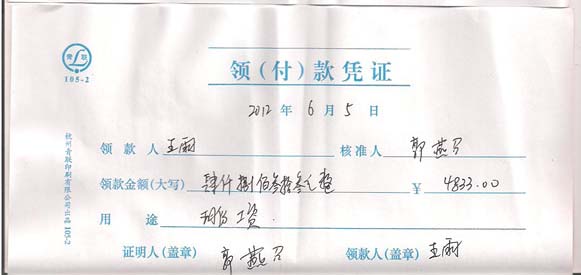 青联
105-2
领(付)款凭证
2012 年 6 月 5 日
领款人 王 核准人 郭燕
领款金额(大写) 肆仟捌佰叁拾叁元整 ¥ 4833.00
用途 月份工资
证明人(盖章) 郭燕 领款人(盖章) 王
杭州青联印刷有限公司出品 105-2